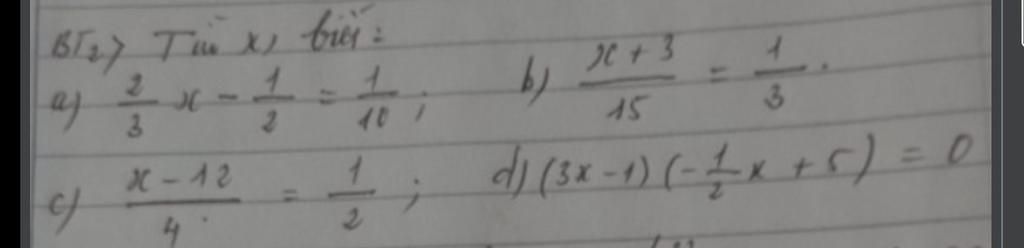 BT2> Tìm x, biết:
a) 2/3 x - 1/2 = 1/10 ; b) x + 3/15 = 1/3 .
c) x - 12/4 = 1/2 ; d) (3x - 1) (-1/2 x + 5) = 0